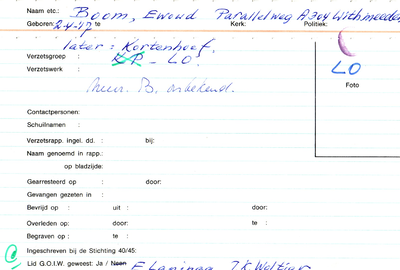 Naam etc.: Boom, Ewoud Parallelweg A 304 Withmeeden
Geboren: 2-4-17 te Kerk: Politiek:
later: Kortenhoef.
Verzetsgroep : KP - LO.
Verzetswerk : LO
Mevr. B. onbekend.
Foto
Contactpersonen:
Schuilnamen :
Verzetsrapp. ingel. dd. : bij:
Naam genoemd in rapp.:
op bladzijde:
Gearresteerd op : door:
Gevangen gezeten in :
Bevrijd op : uit : door:
Overleden op: door: te :
Begraven op : te :
Ingeschreven bij de Stichting 40/45:
Lid G.O.I.W. geweest: Ja / Neen E. Laninga J.K. Woltjer